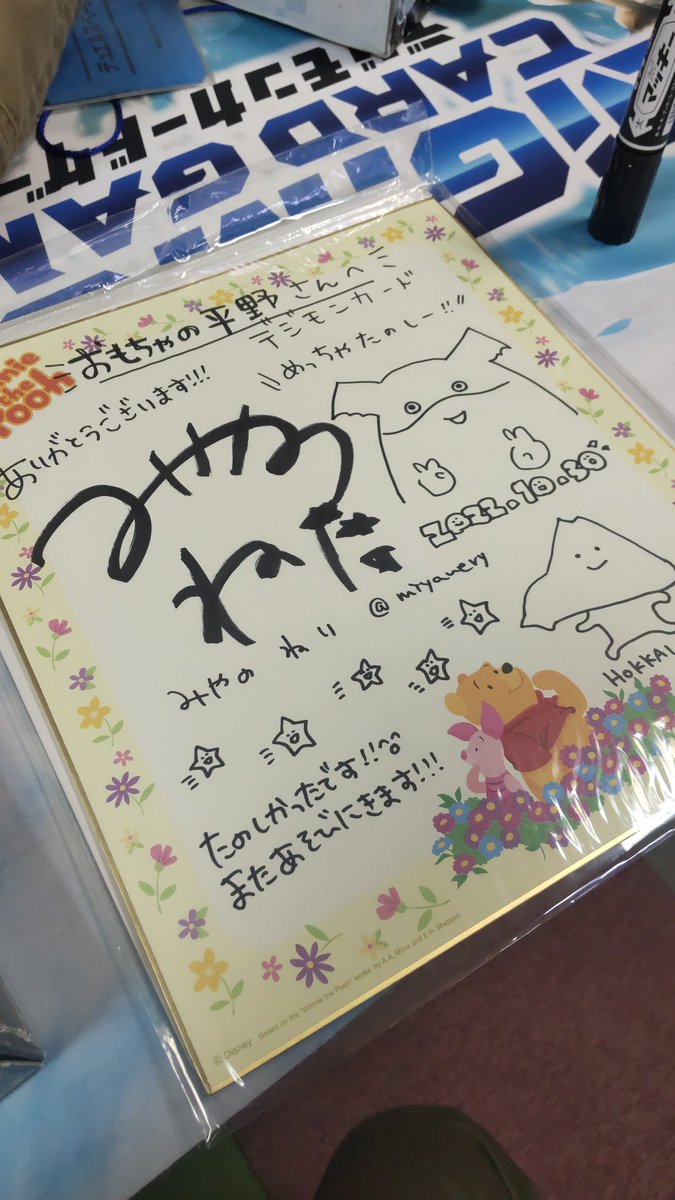 デジモンカードゲー
CARD GAM
マッキー
Winnie the Pooh
おもちゃの平野さんへ
デジモンカード
めっちゃたのしー!!
ありがとうございます!!!
2022.10.30
@miyanery
みやの ねり
HOKKAI
たのしかったです!!^^
またあそびにきます!!!
© Disney Based on the "Winnie the Pooh" works by A.A. Milne and E.H. Shepard.